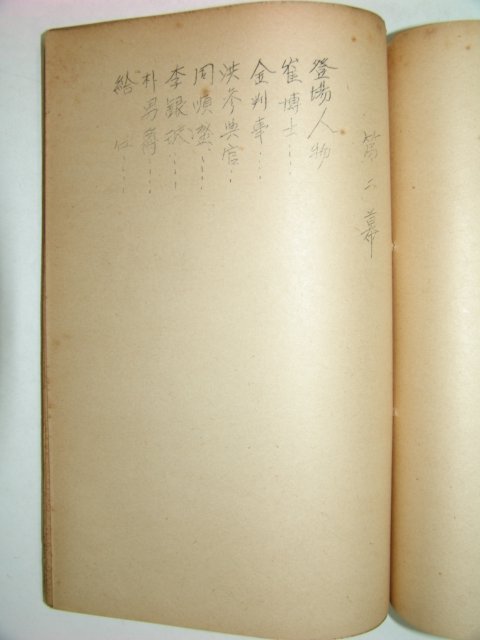 第二幕
登場人物
崔博士……
金判事……
洪参与官…
周順瀅……
李銀沢……
朴昌壽……
給仕……